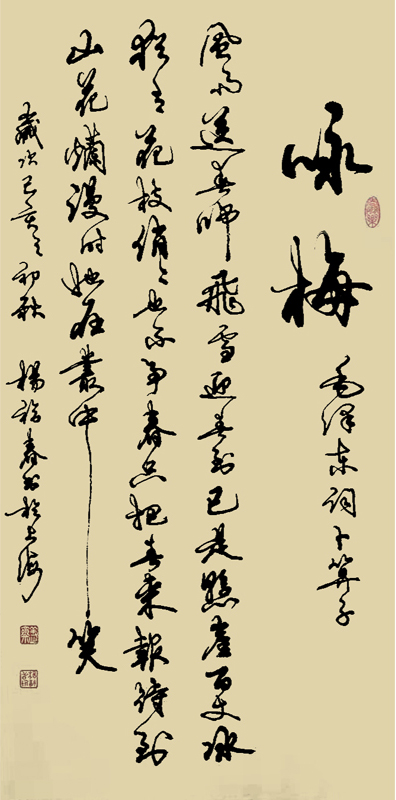 咏梅
毛泽东词卜算子
風雨送春归飛雪迎春到已是懸崖百丈冰
犹有花枝俏〻也不争春只把春来報待到
山花爛漫时她在叢中笑
歲次己亥之初秋 楊春书於上海